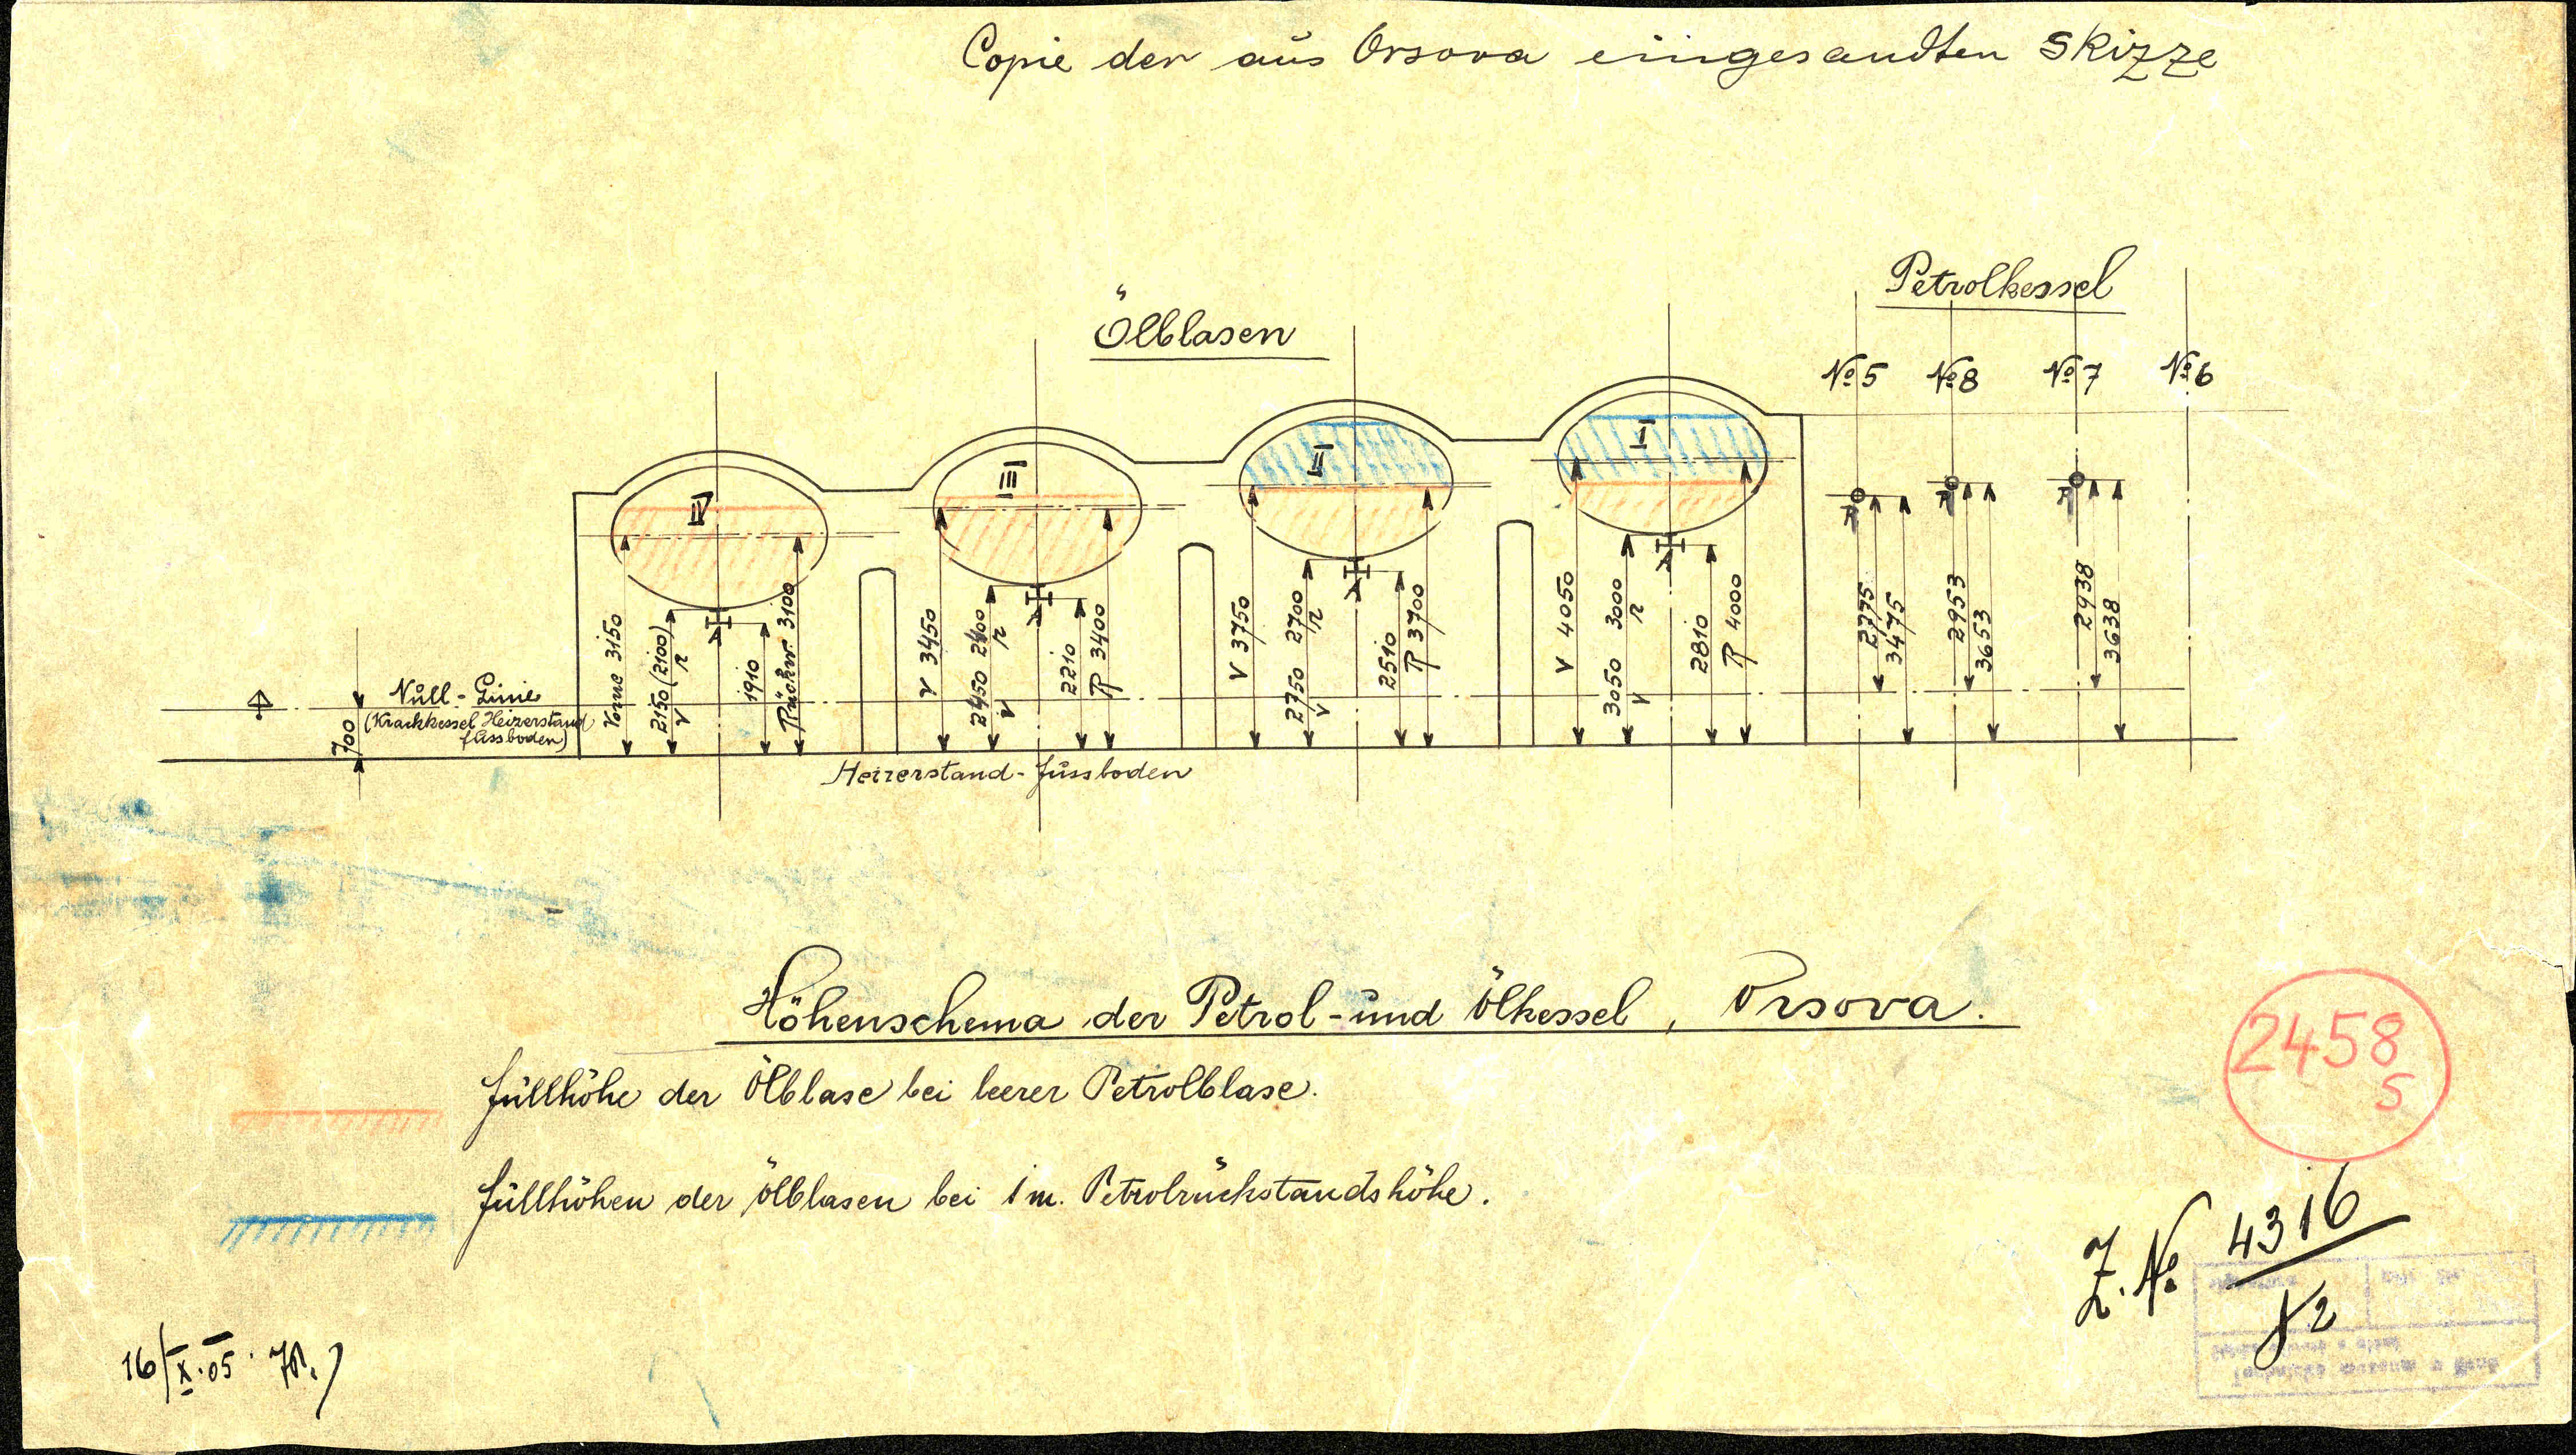 Copie der aus Orsova eingesandten Skizze
Petrolkessel
Ölblasen
No 5 No 8 No 7 No 6
IV III II I
Vorne 3150
2150 (2100)
v r
1910
Rückw. 3100
V 3450
2450 2400
v r
2210
R 3400
V 3750
2750 2700
v r
2510
R 3700
V 4050
3050 3000
v r
2810
R 4000
2775
3475
2953
3653
2938
3638
Null-Linie
(Krackkessel Heizerstand
fussboden)
700
Heizerstand-Fussboden
Höhenschema der Petrol- und Ölkessel, Orsova.
Füllhöhe der Ölblase bei leerer Petrolblase.
Füllhöhen der Ölblasen bei 1 m. Petrolrückstandshöhe.
2458
5
Z. No 4316
16/X.05.